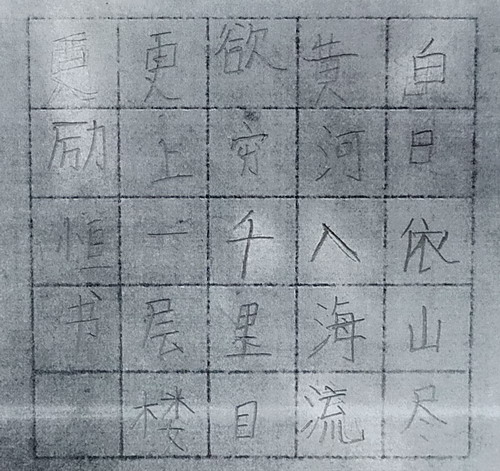 白日依山尽
黄河入海流
欲穷千里目
更上一层楼
励恒书